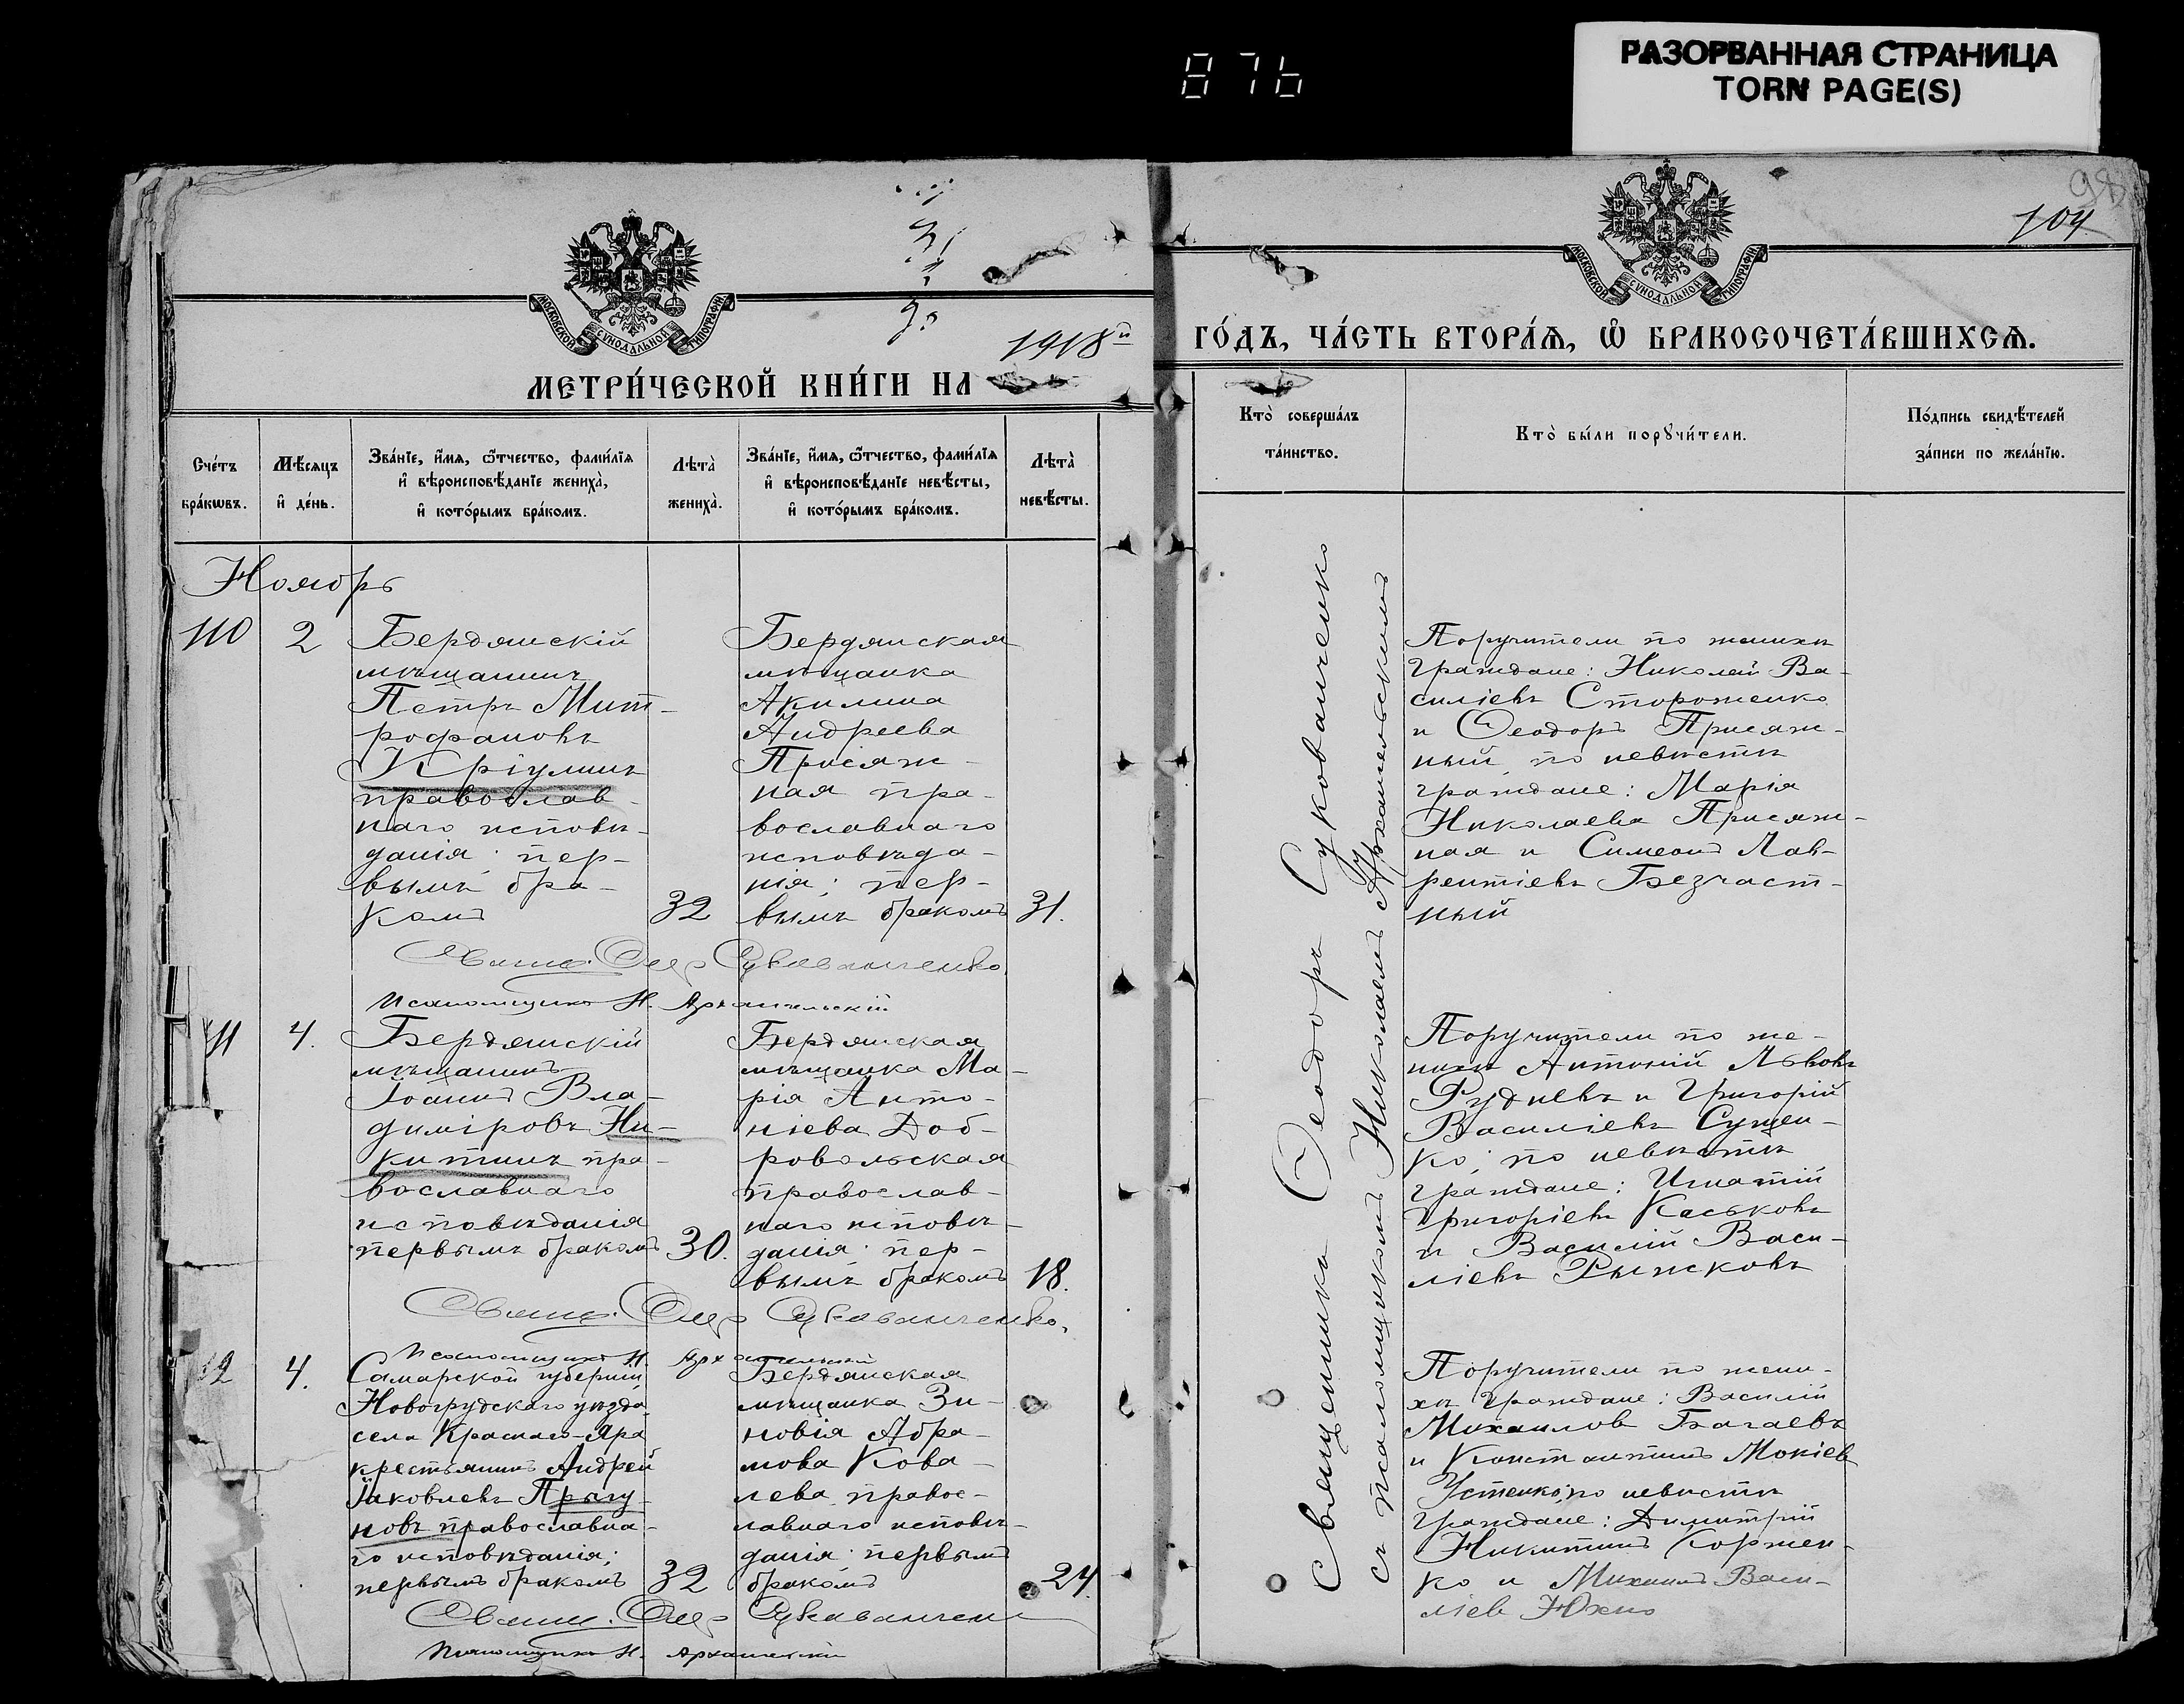 876
РАЗОРВАННАЯ СТРАНИЦА
TORN PAGE(S)
98
104
МОСКОВСКОЙ СѴНОДАЛЬНОЙ ТИПОГРАФІИ
МОСКОВСКОЙ СѴНОДАЛЬНОЙ ТИПОГРАФІИ
МЕТРИ́ЧЕСКОЙ КНИ́ГИ НА 1918й
ГО́ДЪ, ЧА́СТЬ ВТОРА́Ѧ, Ѽ БРАКОСОЧЕТА́ВШИХСѦ.
Сче́тъ бра́кѡвъ.
Мѣ́сѧцъ и҆ де́нь.
Зва́нїе, и҆́мѧ, ѻ҆́тчество, фами́лїѧ
и҆ вѣроисповѣ́данїе жениха̀,
и҆ кото́рымъ бра́комъ.
Лѣта̀ жениха̀.
Зва́нїе, и҆́мѧ, ѻ҆́тчество, фами́лїѧ
и҆ вѣроисповѣ́данїе невѣ́сты,
и҆ кото́рымъ бра́комъ.
Лѣта̀ невѣ́сты.
Кто̀ соверша́лъ
та́инство.
Кто̀ бы́ли порꙋчи́тели.
По́дпись свидѣ́телей
за́писи по жела́нїю.
Ноябрь
110
2
Бердянскій
мѣщанинъ
Петръ Мит-
рофановъ
Кріулинъ
православ-
наго исповѣ-
данія; пер-
вымъ бра-
комъ
32
Бердянская
мѣщанка
Акилина
Андреева
Присяж-
ная пра-
вославнаго
исповѣда-
нія; пер-
вымъ бракомъ
31.
Поручители по женихѣ
граждане: Николай Ва-
силіевъ Стороженко
и Ѳеодоръ Присяж-
ный, по невѣстѣ
граждане: Марія
Николаева Присяж-
ная и Симеонъ Лав-
рентіевъ Безчаст-
ный
Свящ. Ѳеод Сукованченко
Псаломщикъ Н. Архангельскій
11
4.
Бердянскій
мѣщанинъ
Іоаннъ Вла-
диміровъ Ни-
китинъ пра-
вославнаго
исповѣданія
первымъ бракомъ
30.
Бердянская
мѣщанка Ма-
рія Анто-
ніева Доб-
ровольская
православ-
наго исповѣ-
данія; пер-
вымъ бракомъ
18.
Поручители по же-
нихѣ Антоній Львовъ
Рудневъ и Григорій
Василіевъ Сущен-
ко; по невѣстѣ
граждане: Игнатій
Григоріевъ Каськовъ
и Василій Васи-
ліевъ Рыжковъ
Свящ. Ѳеод Сукованченко.
Псаломщикъ Н. Архангельскій
12
4.
Самарской губерніи
Новогрудскаго уѣзда
села Краснаго-Яра
крестьянинъ Андрей
Іаковлевъ Прыгу-
новъ православна-
го исповѣданія;
первымъ бракомъ
32
Бердянская
мѣщанка Зи-
новія Абра-
мова Кова-
лева правос-
лавнаго исповѣ-
данія; первымъ
бракомъ
24
Поручители по жени-
хѣ граждане: Василій
Михаилов Багаевъ
и Константинъ Мокіев
Устенко; по невѣстѣ
граждане: Димитрій
Никитинъ Коржен-
ко и Михаилъ Васи-
ліев Юхно
Свящ. Ѳеод Сукованчен
Псаломщикъ Н. Архангельскій
Священникъ Ѳеодоръ Сукованченко
съ псаломщикомъ Николаемъ Архангельскимъ